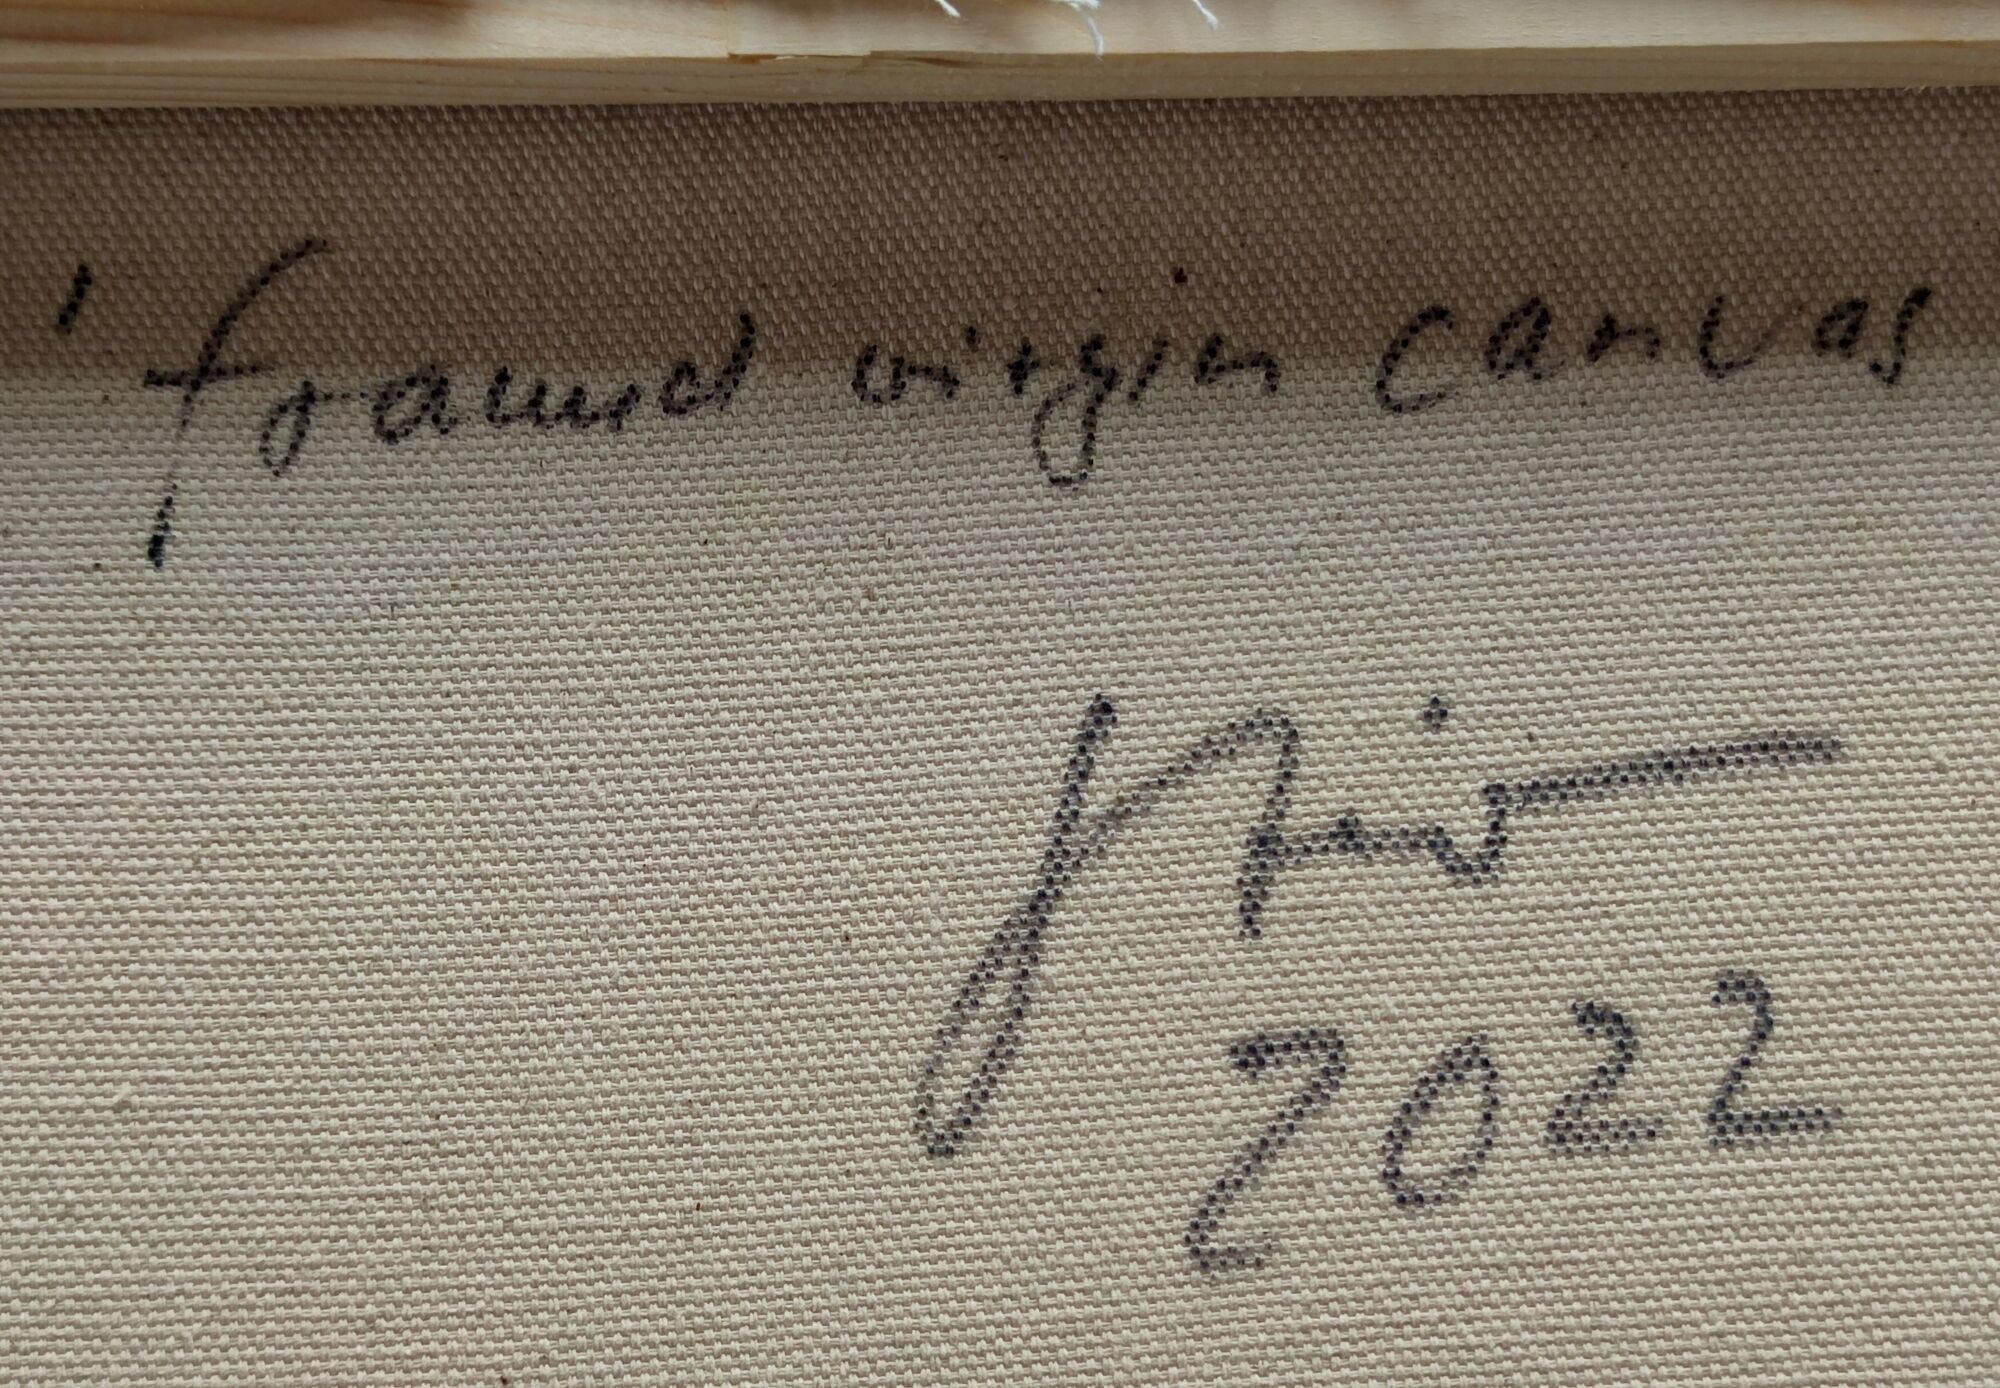 'framed virgin canvas
2022